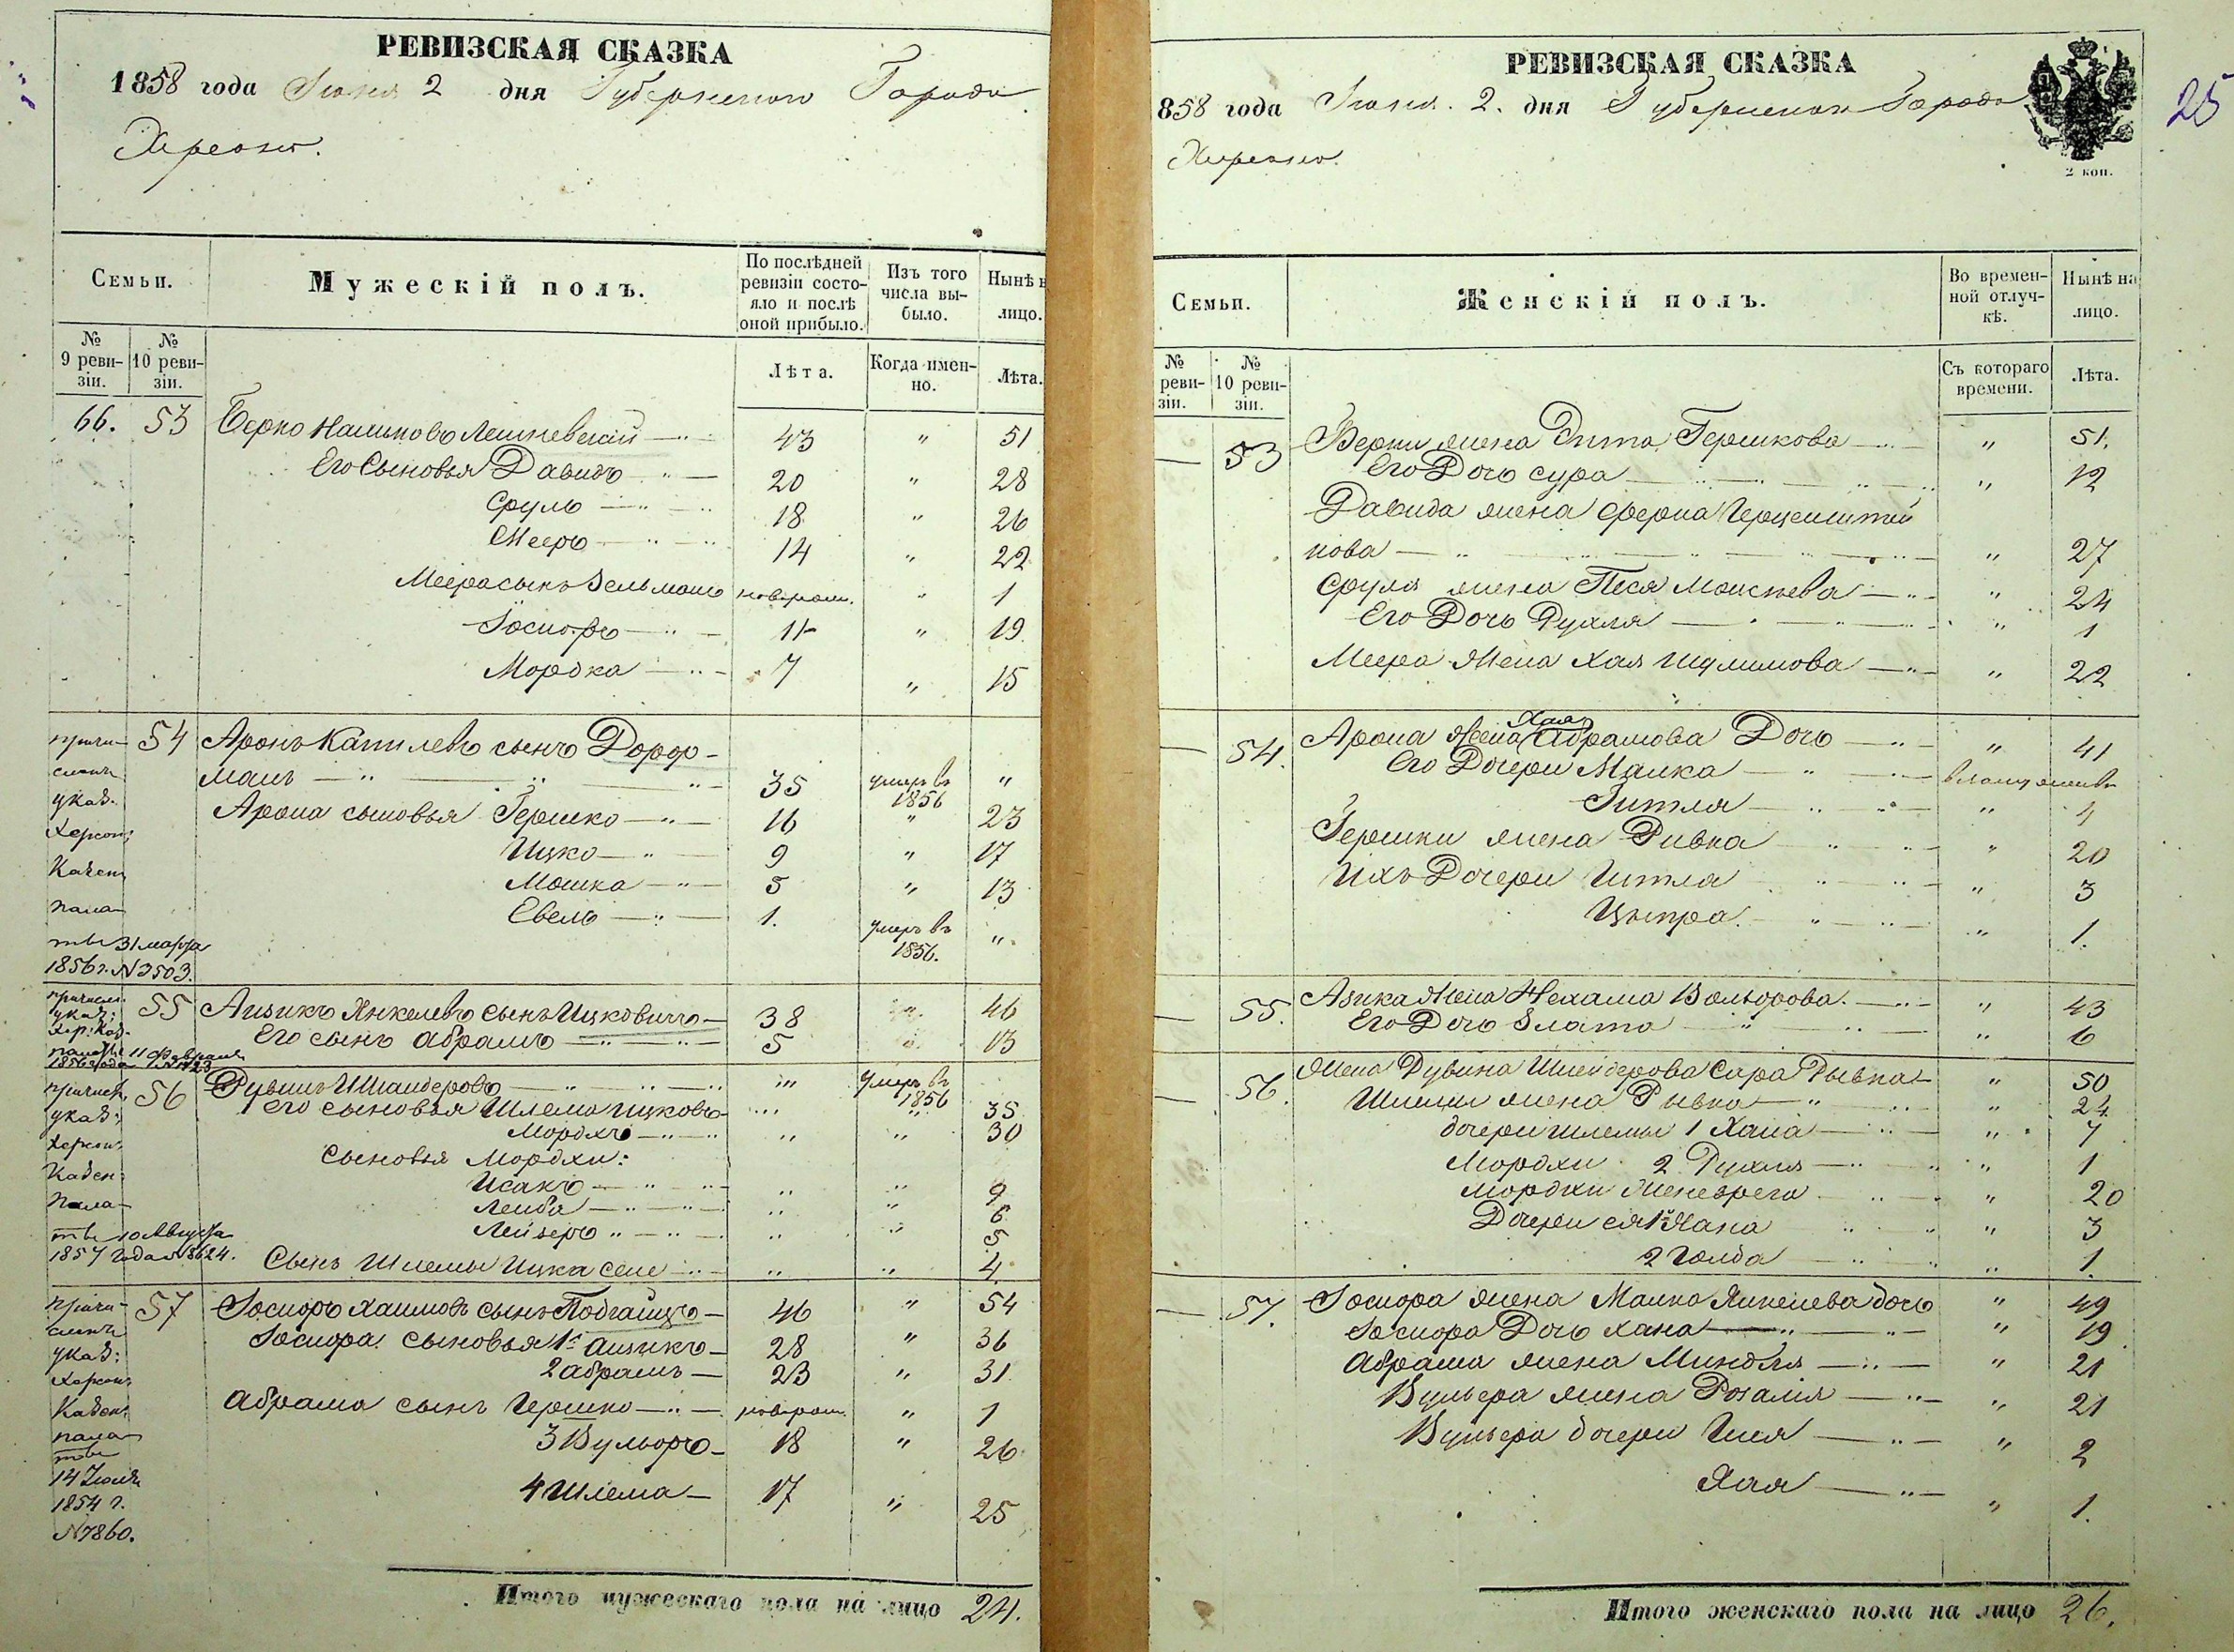 РЕВИЗСКАЯ СКАЗКА
1858 года Июня 2 дня Губернскаго Города
Херсона.
Семьи.
Мужескій полъ.
По послѣдней ревизіи состояло и послѣ оной прибыло.
Изъ того числа выбыло.
Нынѣ н
лицо.
№ 9 ревизіи.
№ 10 ревизіи.
Лѣта.
Когда именно.
Лѣта.
66. 53 Берко 43 " 51
Его Сыновья Давидъ 20 " 28
Сруль 18 " 26
Мееръ 14 " 22
Меера сынъ Зельманъ новорож. " 1
Іосифъ 11 " 19
Мордка 7 " 15
54 Аронъ сынъ Дорф-
манъ 35 умеръ въ 1856 "
Арона сыновья Гершко 16 " 23
Ицко 9 " 17
Мошка 5 " 13
Евель 1. умеръ въ 1856. "
причи-
сленъ
указ.
Херсон:
Казен:
пала-
ты 31 марта
1856 г. № 3503.
55 Айзикъ Янкелевъ сынъ Ицковичъ 38 46
Его сынъ Абрамъ 5 13
причисл.
указ:
Хер: Каз.
палаты 11 Февраля
1856 года
56 Рувинъ Шнайдеровъ умеръ въ 1856
его сыновья Шлема Ицковъ " 35
Мордхъ " 30
Сыновья Мордхи:
Исакъ 9
Лейба 6
Лейзеръ 5
Сынъ Шлемы Ицка 4
причисл.
указ:
Херсон:
Казен:
Пала-
ты 10 Августа
1857 года № 8624.
57 Іосифъ Хаимовъ сынъ Подгайцъ 46 " 54
Іосифа сыновья 1й Айзикъ 28 " 36
2 Абрамъ 23 " 31
Абрама сынъ Гершко новорож. " 1
3 Вульфъ 18 " 26
4 Шлема 17 " 25
причи-
сленъ
указ:
Херсон:
Казен:
пала-
ты
14 Іюля
1854 г.
№ 7860.
Итого мужескаго пола на лицо 24.
РЕВИЗСКАЯ СКАЗКА
858 года Июня 2. дня Губернскаго Города
Херсона.
2 коп.
25
Семьи.
Женскій полъ.
Во временной отлучкѣ.
Нынѣ на
лицо.
№ реви-
зіи.
№ 10 ревизіи.
Съ котораго времени.
Лѣта.
53 Берки жена Гершкова " 51.
Его Дочь Сура " 12
Давида жена
нова " 27
Сруля жена Песя Моисеева " 24
Его Дочь Рухля " 1
Меера жена Хая Шулимова " 22
54. Арона жена Хая Абрамова Дочь " 41
Его Дочери Малка
Гитля " 4
Гершки жена Ривка " 20
Ихъ Дочери Итля " 3
Ципра " 1.
55. Азика жена Нехама " 43
Его Дочь Злата " 6
56. Жена Рувина Шнейдерова Сара Рывка " 50
Шлемы жена Рывка " 24
дочери Шлемы 1 Хана " 7
Мордхи 2 Рухля " 1
Мордхи жена " 20
Дочери ея 1 Хана " 3
2 Голда " 1.
57. Іосифа жена Малка Янкелева дочь " 49
Іосифа Дочь Хана " 19
Абрама жена Миндля " 21
Вульфа жена Розалія " 21
Вульфа дочери " 2
Хая " 1.
Итого женскаго пола на лицо 26.